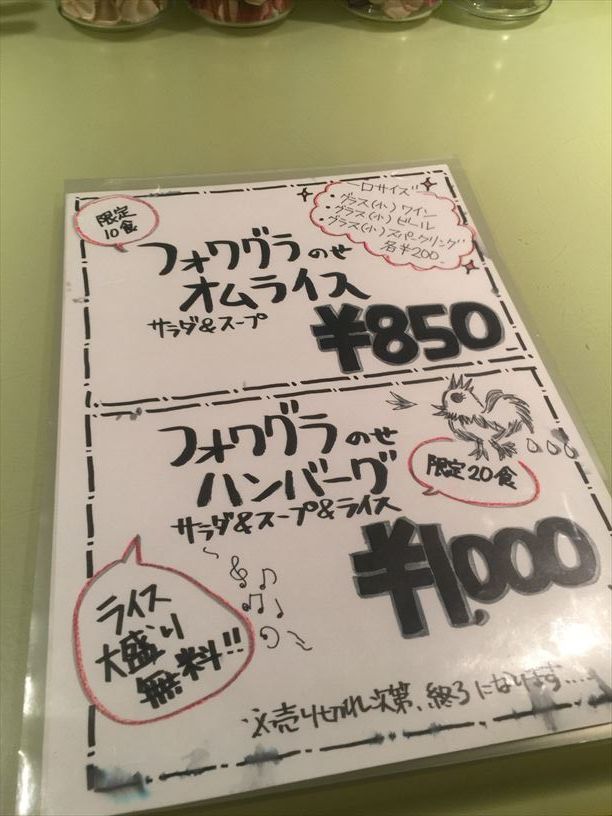 限定
10食
一口サイズ
・グラス(小)ワイン
・グラス(小)ビール
・グラス(小)スパークリング
各¥200
フォワグラのせ
オムライス
サラダ&スープ
¥850
フォワグラのせ
ハンバーグ
限定20食
サラダ&スープ&ライス
¥1,000
ライス
大盛り
無料!!
※売り切れ次第、終了になります....